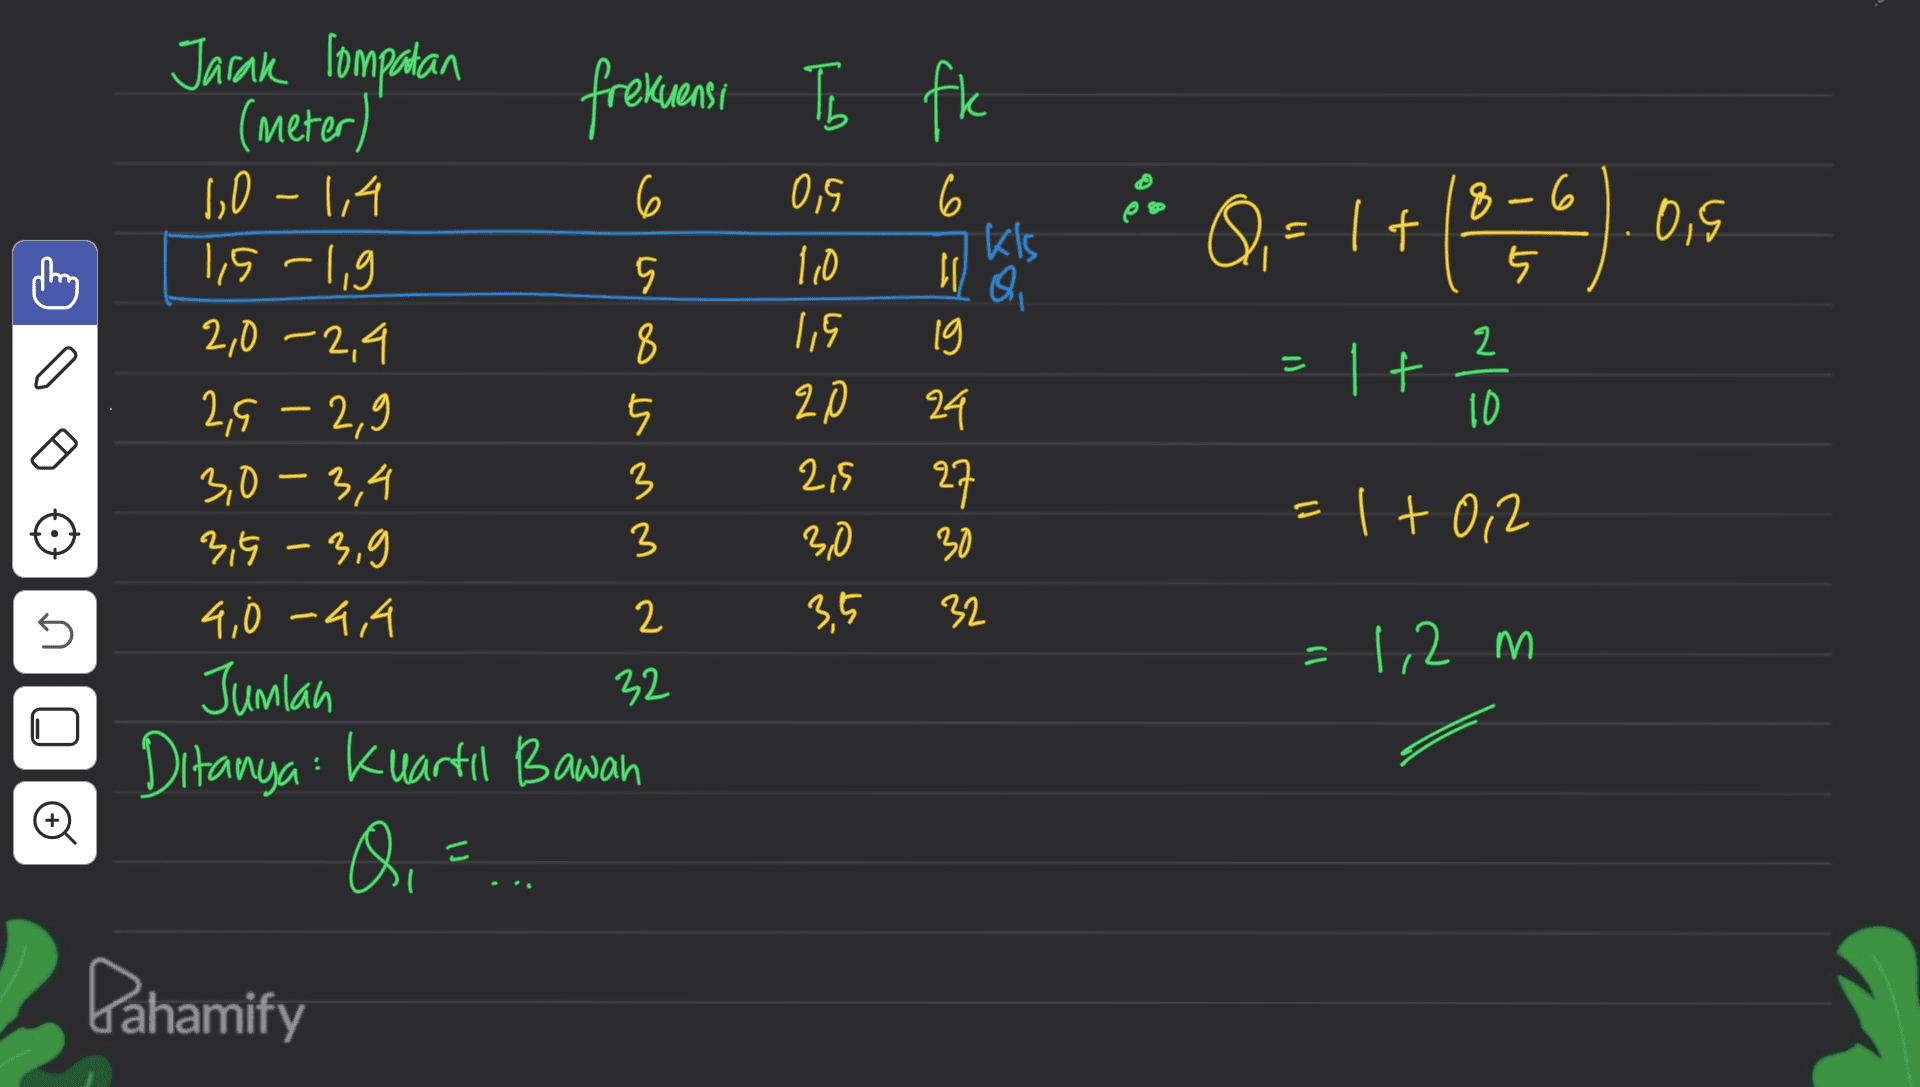 Jarak lompatan (meter) frekuensi Tb fk
1,0 - 1,4 6 0,5 6
1,5 - 1,9 5 1,0 11 kls Q₁
2,0 - 2,4 8 1,5 19
2,5 - 2,9 5 2,0 24
3,0 - 3,4 3 2,5 27
3,5 - 3,9 3 3,0 30
4,0 - 4,4 2 3,5 32
Jumlah 32
Ditanya : Kuartil Bawah
Q₁ = ...
∴ Q₁ = 1 + (8 - 6 / 5) . 0,5
= 1 + 2/10
= 1 + 0,2
= 1,2 m
Pahamify